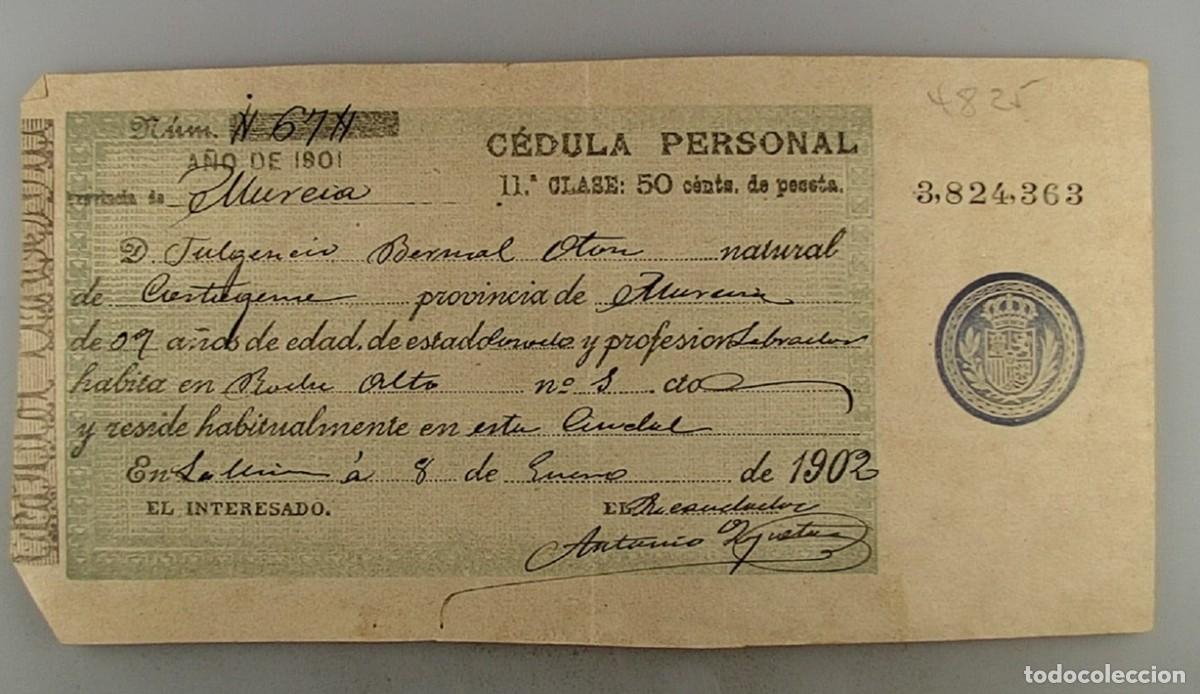 4825
Núm. # 67 #
CÉDULA PERSONAL
AÑO DE 1901
11.ª CLASE: 50 cénts. de peseta.
3,824,363
Provincia de Murcia
D Fulgencio Bernal Oton natural
de Cartagena provincia de Murcia
de años de edad, de estado y profesion Labrador
habita en Alto nº 3 cto
y reside habitualmente en esta Ciudad
En La Union á 8 de Enero de 1902
EL INTERESADO.
EL Recaudador
Antonio
todocoleccion